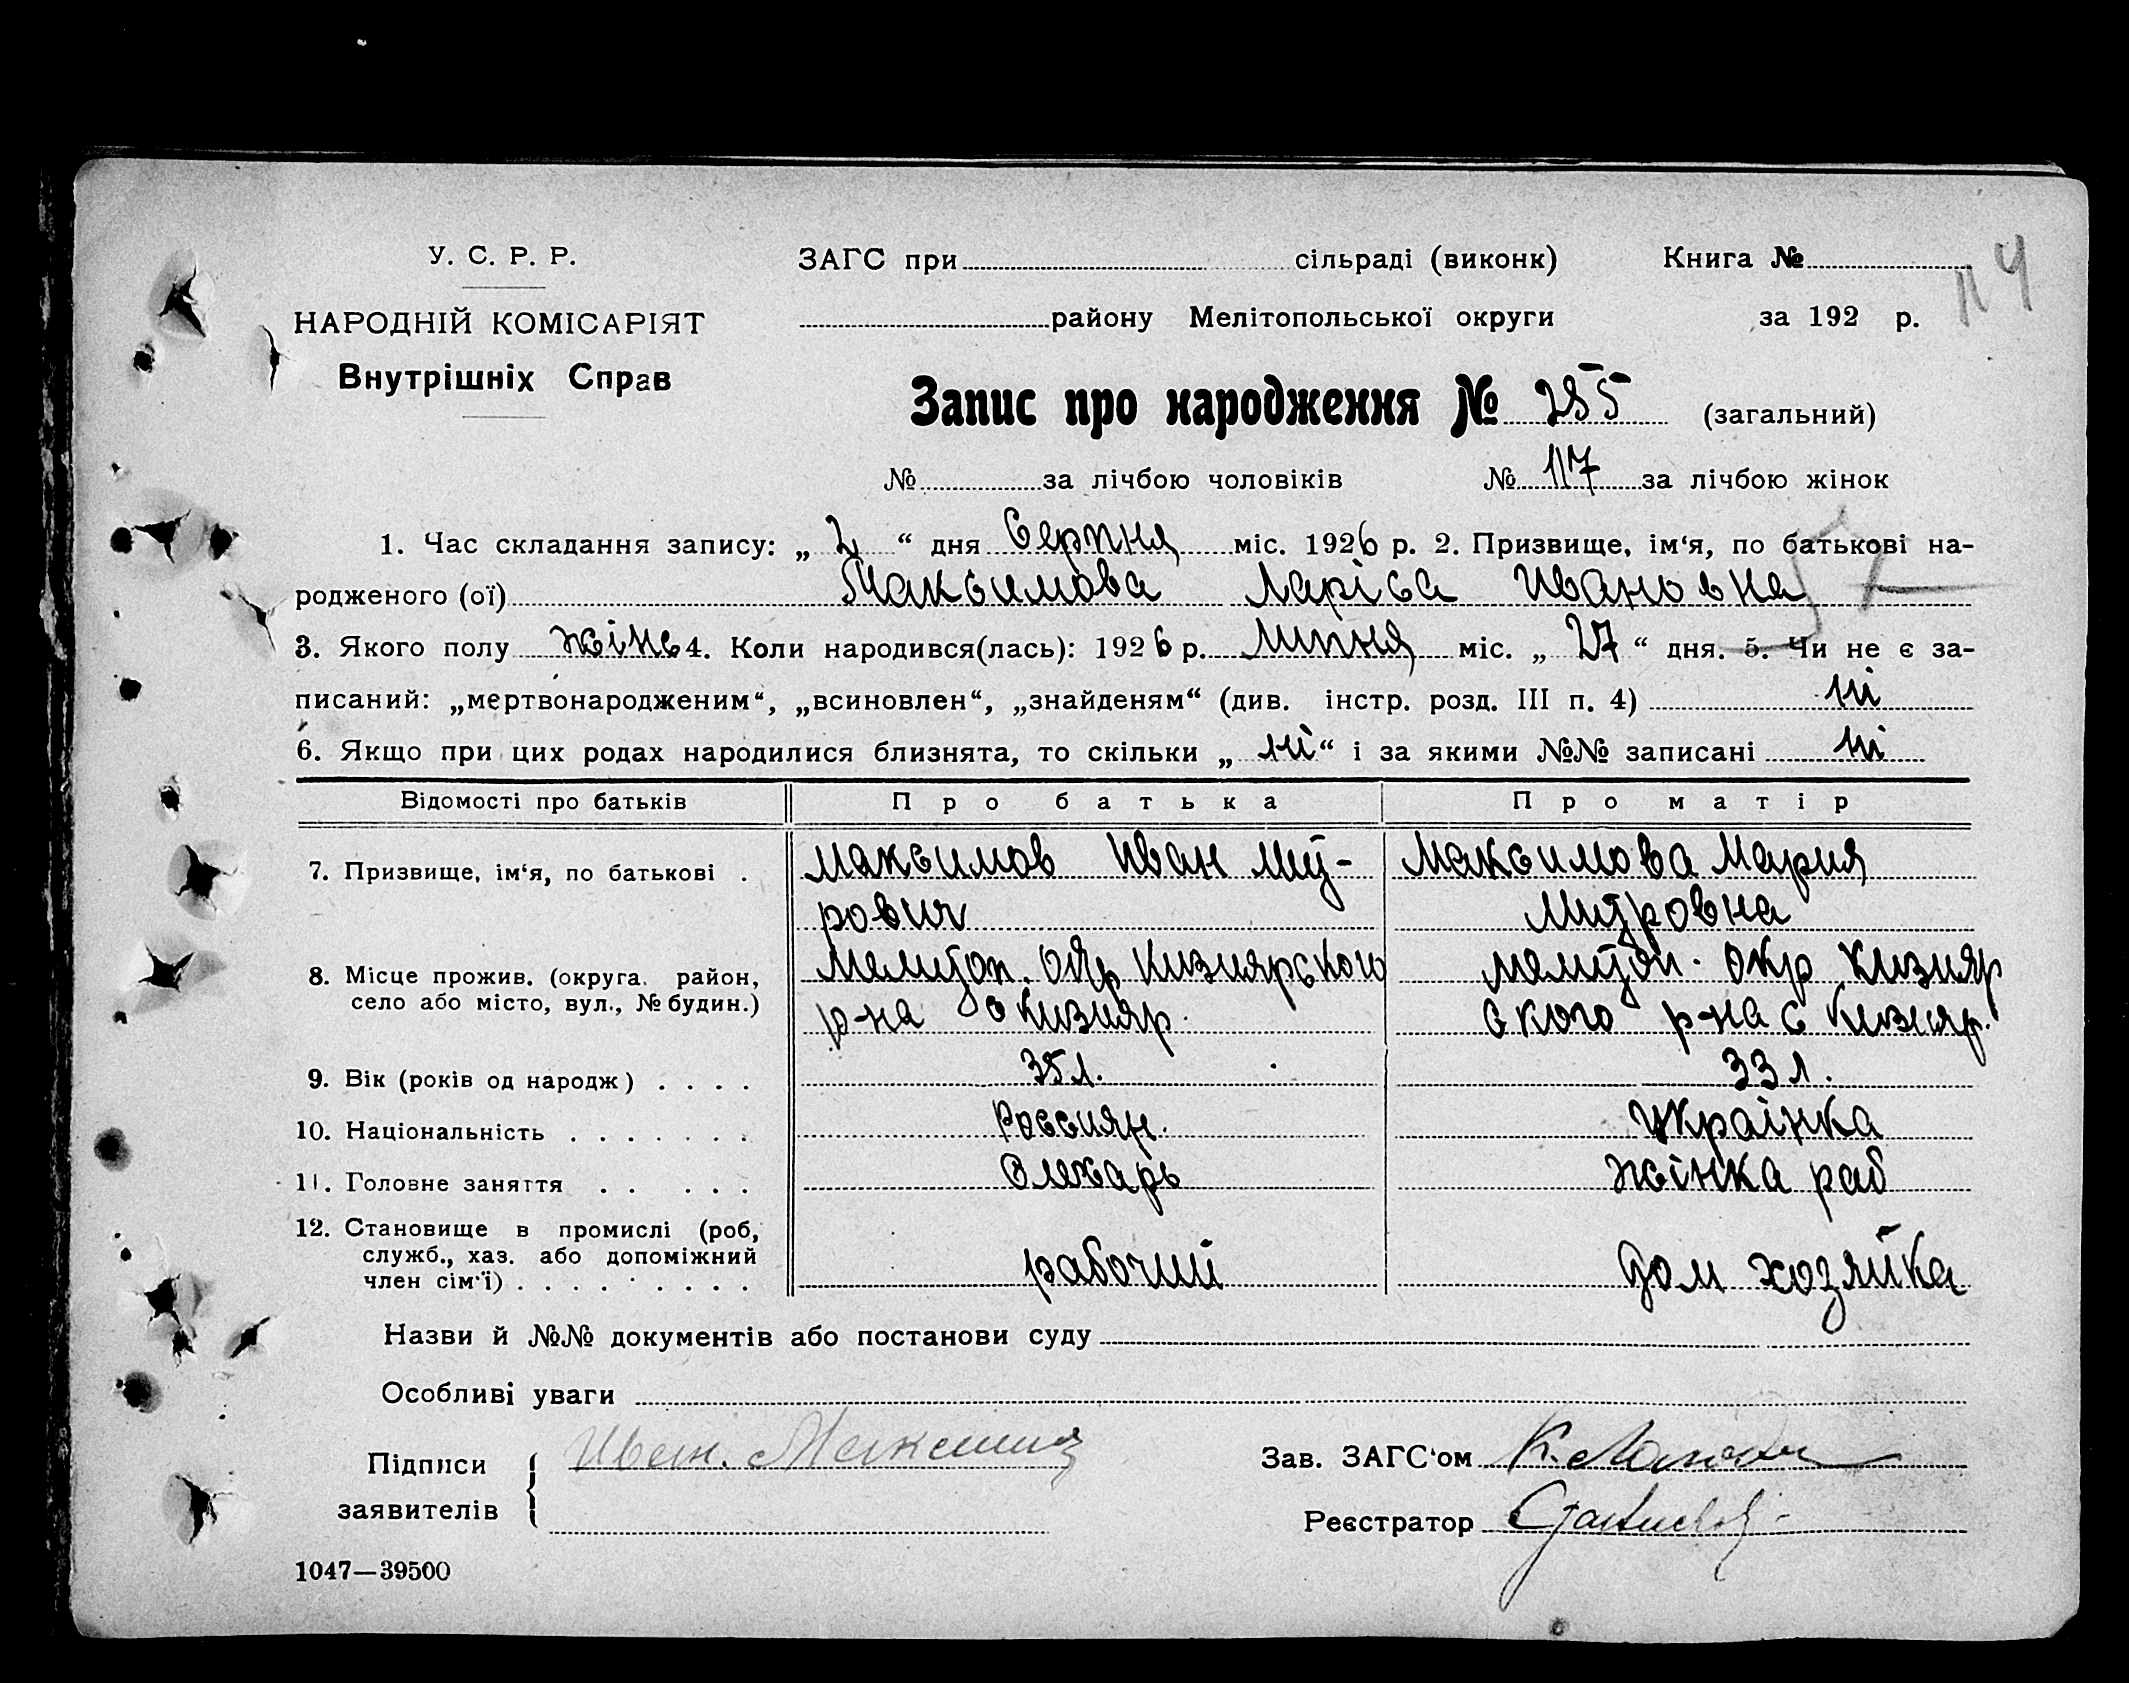 У. С. Р. Р.
НАРОДНІЙ КОМІСАРІЯТ
Внутрішніх Справ
ЗАГС при сільраді (виконк)
Книга №
району Мелітопольської округи
за 192 р.
114
Запис про народження № 255 (загальний)
№ за лічбою чоловіків № 117 за лічбою жінок
1. Час складання запису: „ 2 “ дня Серпня міс. 1926 р. 2. Призвище, ім‘я, по батькові на-
родженого (ої) Максимова Ларіса Ивановна
3. Якого полу жінс 4. Коли народився(лась): 1926 р. липня міс. „ 27 “ дня. 5. Чи не є за-
писаний: „мертвонародженим“, „всиновлен“, „знайденям“ (див. інстр. розд. III п. 4) ні
6. Якщо при цих родах народилися близнята, то скільки „ ні “ і за якими №№ записані ні
Відомості про батьків Про батька Про матір
7. Призвище, ім‘я, по батькові . Максимов Иван Мит- Максимова Мария
рович Митровна
8. Місце прожив. (округа, район, Мелитоп. окр Кизиярского мелитоп. окр кизияр
село або місто, вул., № будин.) р-на с кизияр. ского р-на с кизияр.
9. Вік (років од народж) . . . . 35 л. 33 л.
10. Національність . . . . . . . Россиян. украінка
11. Головне заняття . . . . . слюсарь жінка раб
12. Становище в промислі (роб,
служб., хаз. або допоміжний
член сім‘ї) . . . . . . . . рабочий дом хозяйка
Назви й №№ документів або постанови суду
Особливі уваги
Підписи
заявителів
Иван. Максимов
Зав. ЗАГС‘ом К.
Реєстратор
1047—39500